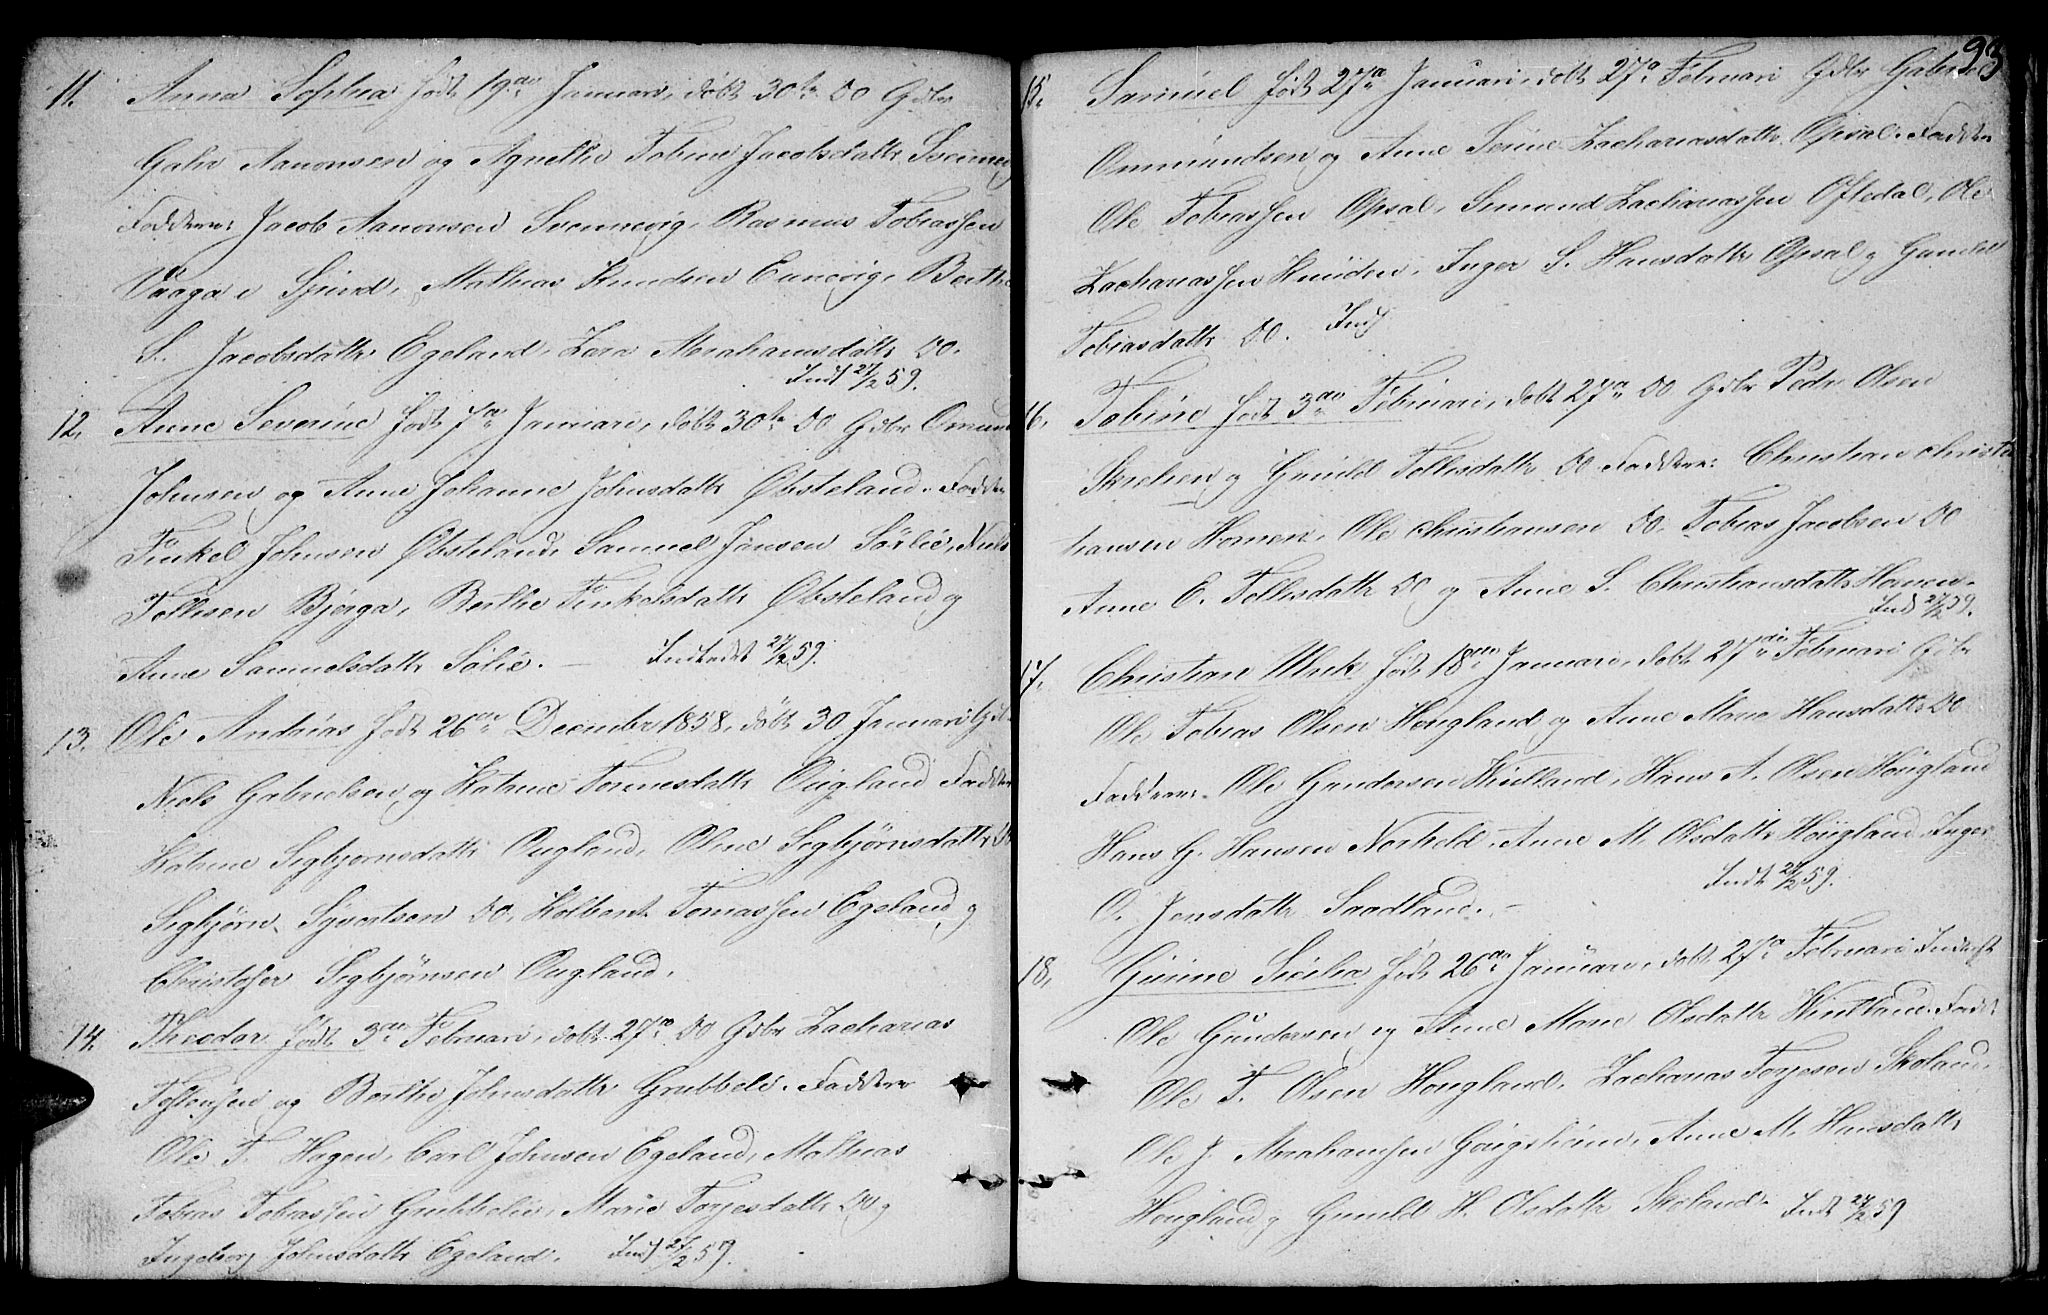 11. Anna Sophia født 19de Januari, døbt 30te do Gdbr
Gahr Aanonsen og Agnethe Tobine Jacobsdattr Svennevig
Faddere: Jacob Aanonsen Svennevig, Rasmus Tobiassen
Vaage i Spind, Mathias Knudsen Eunevig, Berthe
S. Jacobsdattr Egeland, Lara Abrahamsdattr do.
Indf 27/2 59.
12. Anne Severine født 7de Januari, døbt 30te do Gdbr Omund
Johnsen og Anne Johanne Johnsdattr Øbsteland. Faddere
Tinkel Johnsen Øbsteland, Samuel Jansen Sørlie, Niels
Tollisen Bjørga, Berthe Tinkelsdattr Øbsteland og
Anne Samuelsdattr Sølie. — Indladt 27/2 59.
13. Ole Andreas født 26de December 1858, døbt 30 Januari Gdbr
Niels Gabrielsen og Katrine Tønnesdattr Øugland Faddere
Katrine Sigbjørnsdattr Øugland, Oline Sigbjørnsdattr do
Sigbjørn Syvertsen do, Kolbent Tomassen Egeland og
Christofer Sigbjørnsen Øugland.
14. Theodor født 3de Februari, døbt 27de do Gdbr Zacharias
Tostensen og Berthe Johnsdattr Grubbeli. Faddere
Ole T. Hagen, Carl Johnsen Egeland, Mathias
Tobias Tobiassen Grubbelie, Marie Torjesdattr do og
Ingeborg Johnsdattr Egeland. Indf 27/2 59.
93
15. Samuel født 27de Januari, døbt 27de Februari Gdbr Gabriel
Ommundsen og Anne Serine Zachariasdattr Opsal. Faddere
Ole Tobiassen Opsal, Semund Zachariassen Oftedal, Ole
Zachariassen Kniiden, Inger S. Hansdattr Opsal og Gunild
Tobiasdattr do. Indf
16. Tobine født 3de Februari, døbt 27de do Gdbr Peder Olsen
Skrehen og Gunild Tollisdattr do Faddere: Christian Christ
hansen Homen, Ole Christiansen do, Tobias Jacobsen do
Anne E. Tollisdattr do og Anne S. Christiansdattr Homen.
Ind 27/2 59.
17. Christian Ulrik født 18de Januari, døbt 27de Februari Gdbr
Ole Tobias Olsen Hougland og Anne Marie Hansdattr do
Faddere. Ole Gundersen Kvitland, Hans A. Olsen Hougland
Hans G. Hansen Norheld, Anne M. Olsdattr Hougland, Inger
O. Jensdattr Saadland. — Indt 27/2 59.
18. Gurine Sicilia født 26de Januari, døbt 27de Februari Inderst
Ole Gundersen og Anne Marie Olsdattr Kvitland. Fadd:
Ole T. Olsen Hougland, Zacharias Torjesen Skoland,
Ole J. Abrahamsen Gougsheim, Anne M. Hansdattr
Hougland og Gunild H. Olsdattr Skoland. Indt 27/2 59